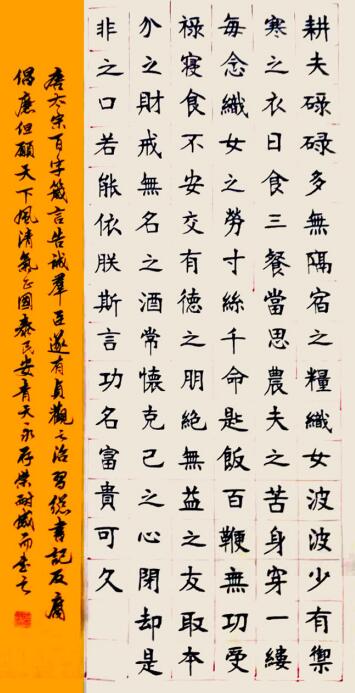 耕夫碌碌多無隔宿之糧織女波波少有禦
寒之衣日食三餐當思農夫之苦身穿一縷
每念織女之勞寸絲千命匙飯百鞭無功受
祿寢食不安交有德之朋絕無益之友取本
分之財戒無名之酒常懷克己之心閉却是
非之口若能依朕斯言功名富貴可久
唐太宗百字箴言告誡羣臣遂有貞觀之治習總書記反腐
倡廉但願天下風清氣正國泰民安青天永存榮耐感而書之